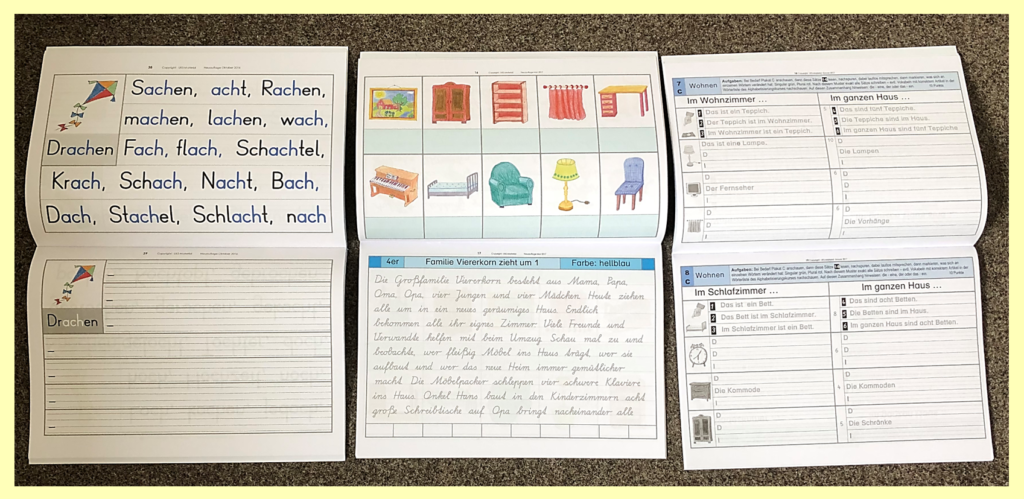 Sachen, acht, Rachen,
machen, lachen, wach,
Drachen
Fach, flach, Schachtel,
Krach, Schach, Nacht, Bach,
Dach, Stachel, Schlacht, nach
Drachen
4er
Familie Viererkorn zieht um 1
Farbe: hellblau
Die Großfamilie Viererkorn besteht aus Mama, Papa,
Oma, Opa, vier Jungen und vier Mädchen. Heute ziehen
alle um in ein neues geräumiges Haus. Endlich
bekommen alle ihr eignes Zimmer. Viele Freunde und
Verwandte helfen mit beim Umzug. Schau mal zu und
beobachte, wer fleißig Möbel ins Haus trägt, wer sie
aufbaut und wer das neue Heim immer gemütlicher
macht. Die Möbelpacker schleppen vier schwere Klaviere
ins Haus. Onkel Hans baut in den Kinderzimmern acht
große Schreibtische auf. Opa bringt nacheinander alle
7
C
Wohnen
Im Wohnzimmer ...
Im ganzen Haus ...
1 Das ist ein Teppich.
2 Der Teppich ist im Wohnzimmer.
3 Im Wohnzimmer ist ein Teppich.
4 Das sind fünf Teppiche.
5 Die Teppiche sind im Haus.
6 Im ganzen Haus sind fünf Teppiche
Das ist eine Lampe.
D
I
D
Die Lampen
I
D
Der Fernseher
I
D
D
I
D
D
I
D
Die Vorhänge
I
8
C
Wohnen
Im Schlafzimmer ...
Im ganzen Haus ...
1 Das ist ein Bett.
2 Das Bett ist im Schlafzimmer.
3 Im Schlafzimmer ist ein Bett.
4 Das sind acht Betten.
5 Die Betten sind im Haus.
6 Im ganzen Haus sind acht Betten.
D
D
I
D
D
I
D
Die Kommode
I
D
Die Kommoden
I
D
D
I
D
Die Schränke
I